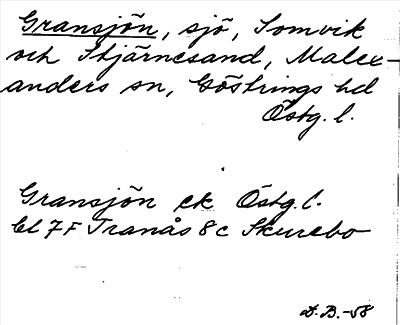 Gransjön, sjö, Somvik
och Stjärnesand, Malex-
anders sn, Göstrings hd
Östg. l.
Gransjön ek Östg. l.
bl 7F Tranås 8c Skurebo
D.B.-58